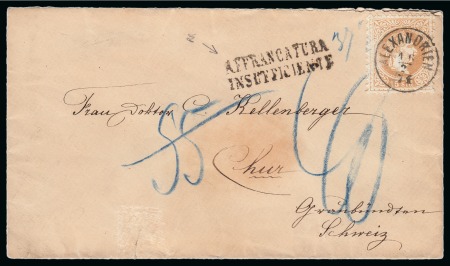 AFFRANCATURA
INSUFFICIENTE
ALEXANDRIEN
Frau Doktor C. Kellenberger
Chur
Graubündten
Schweiz